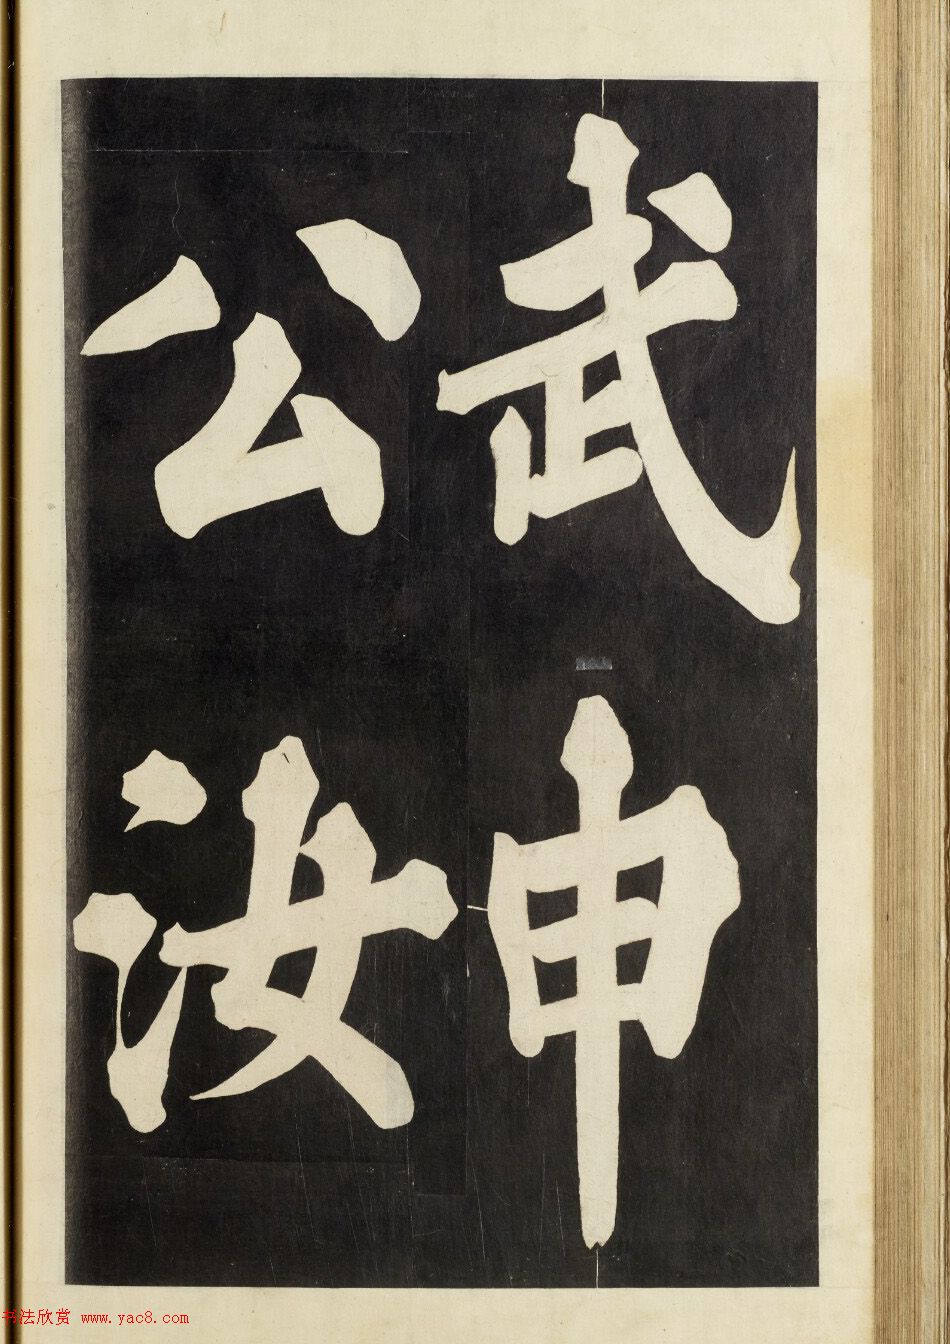 武申
公汝
书法欣赏 www.yac8.com